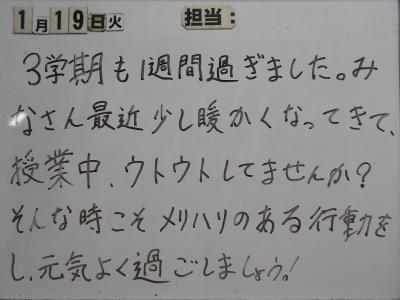 1月19日火 担当:
3学期も1週間過ぎました。み
なさん最近少し暖かくなってきて、
授業中、ウトウトしてませんか?
そんな時こそメリハリのある行動を
し、元気よく過ごしましょう!